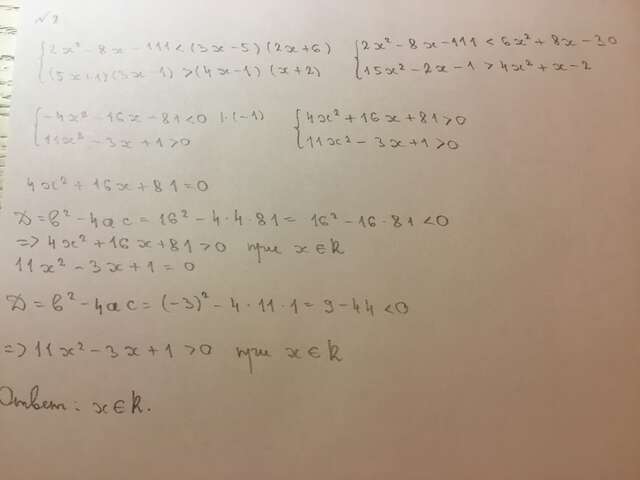 № 2
{2x² - 8x - 111 < (3x - 5)(2x + 6) {2x² - 8x - 111 < 6x² + 8x - 30
{(5x+1)(3x - 1) > (4x - 1)(x + 2) {15x² - 2x - 1 > 4x² + x - 2
{-4x² - 16x - 81 < 0 | · (-1) {4x² + 16x + 81 > 0
{11x² - 3x + 1 > 0 {11x² - 3x + 1 > 0
4x² + 16x + 81 = 0
D = b² - 4ac = 16² - 4 · 4 · 81 = 16² - 16 · 81 < 0
=> 4x² + 16x + 81 > 0 при x ∈ R
11x² - 3x + 1 = 0
D = b² - 4ac = (-3)² - 4 · 11 · 1 = 9 - 44 < 0
=> 11x² - 3x + 1 > 0 при x ∈ R
Ответ: x ∈ R.